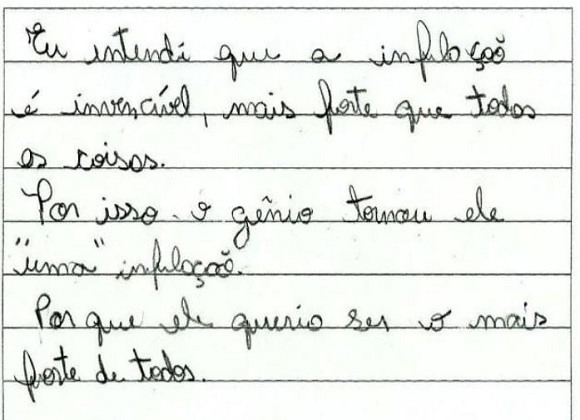 Eu intendi que a infulação
é invencível, mais forte que todos
as coisas.
Por isso o gênio tornou ele
"uma" infulação.
Por que ele queria ser o mais
forte de todos.